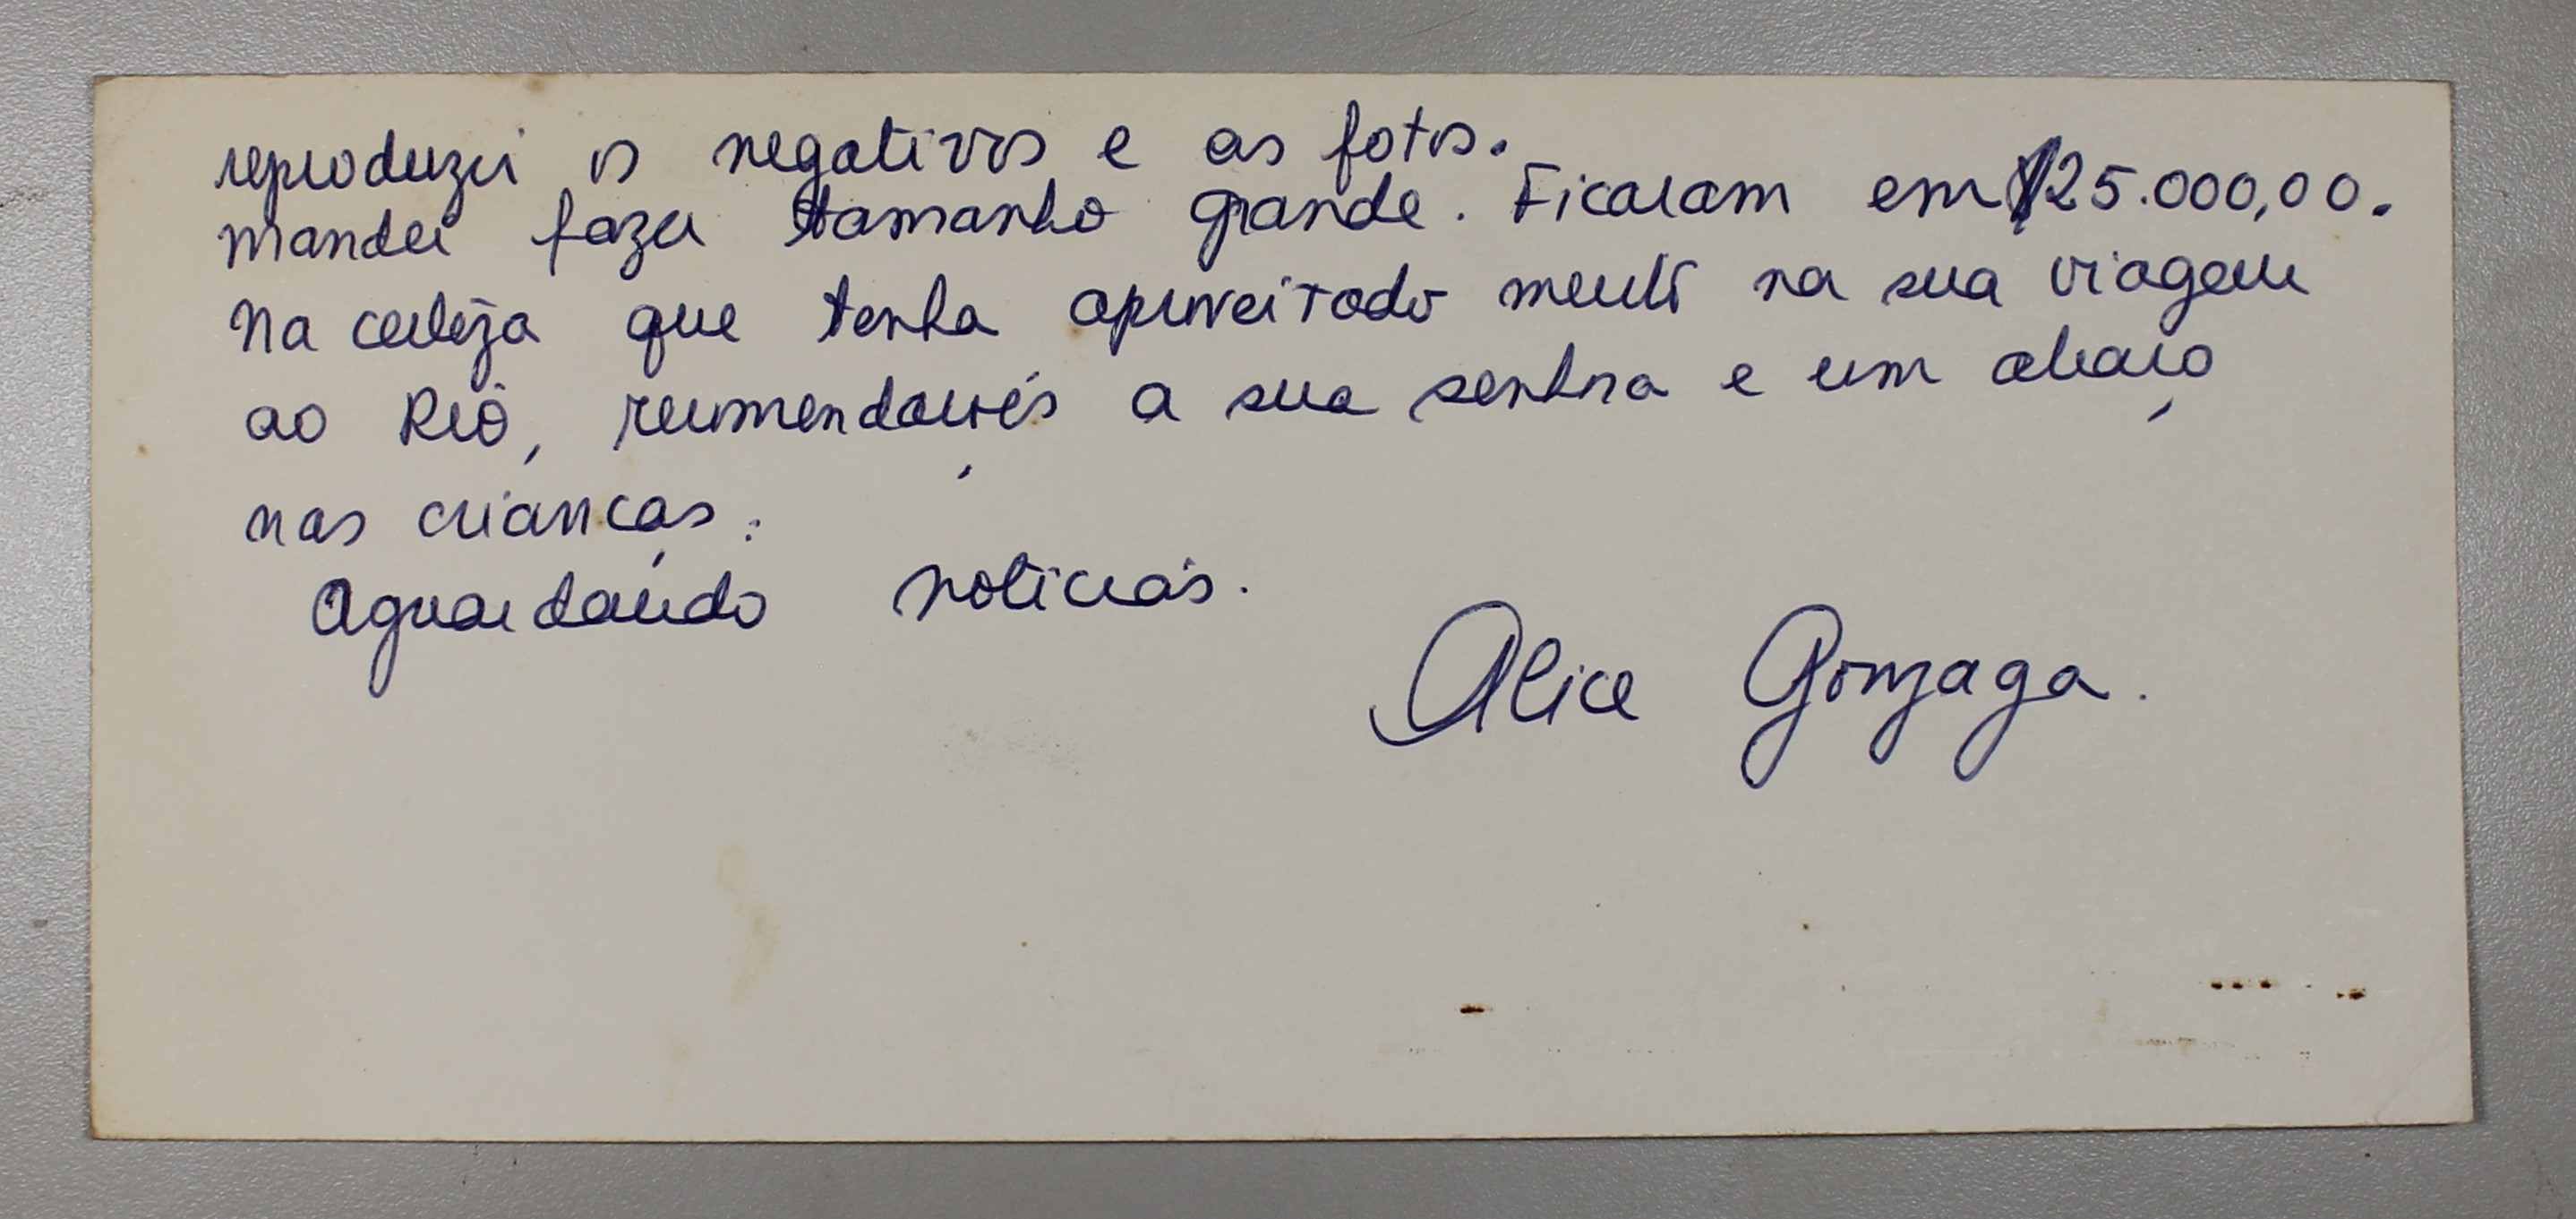 reproduzir os negativos e as fotos.
mandei fazer tamanho grande. Ficaram em $25.000,00.
Na certeza que tenha aproveitado muito na sua viagem
ao Rio, recomendações a sua senhora e um abraço
nas crianças.
Aguardando noticias.
Alice Gonzaga.